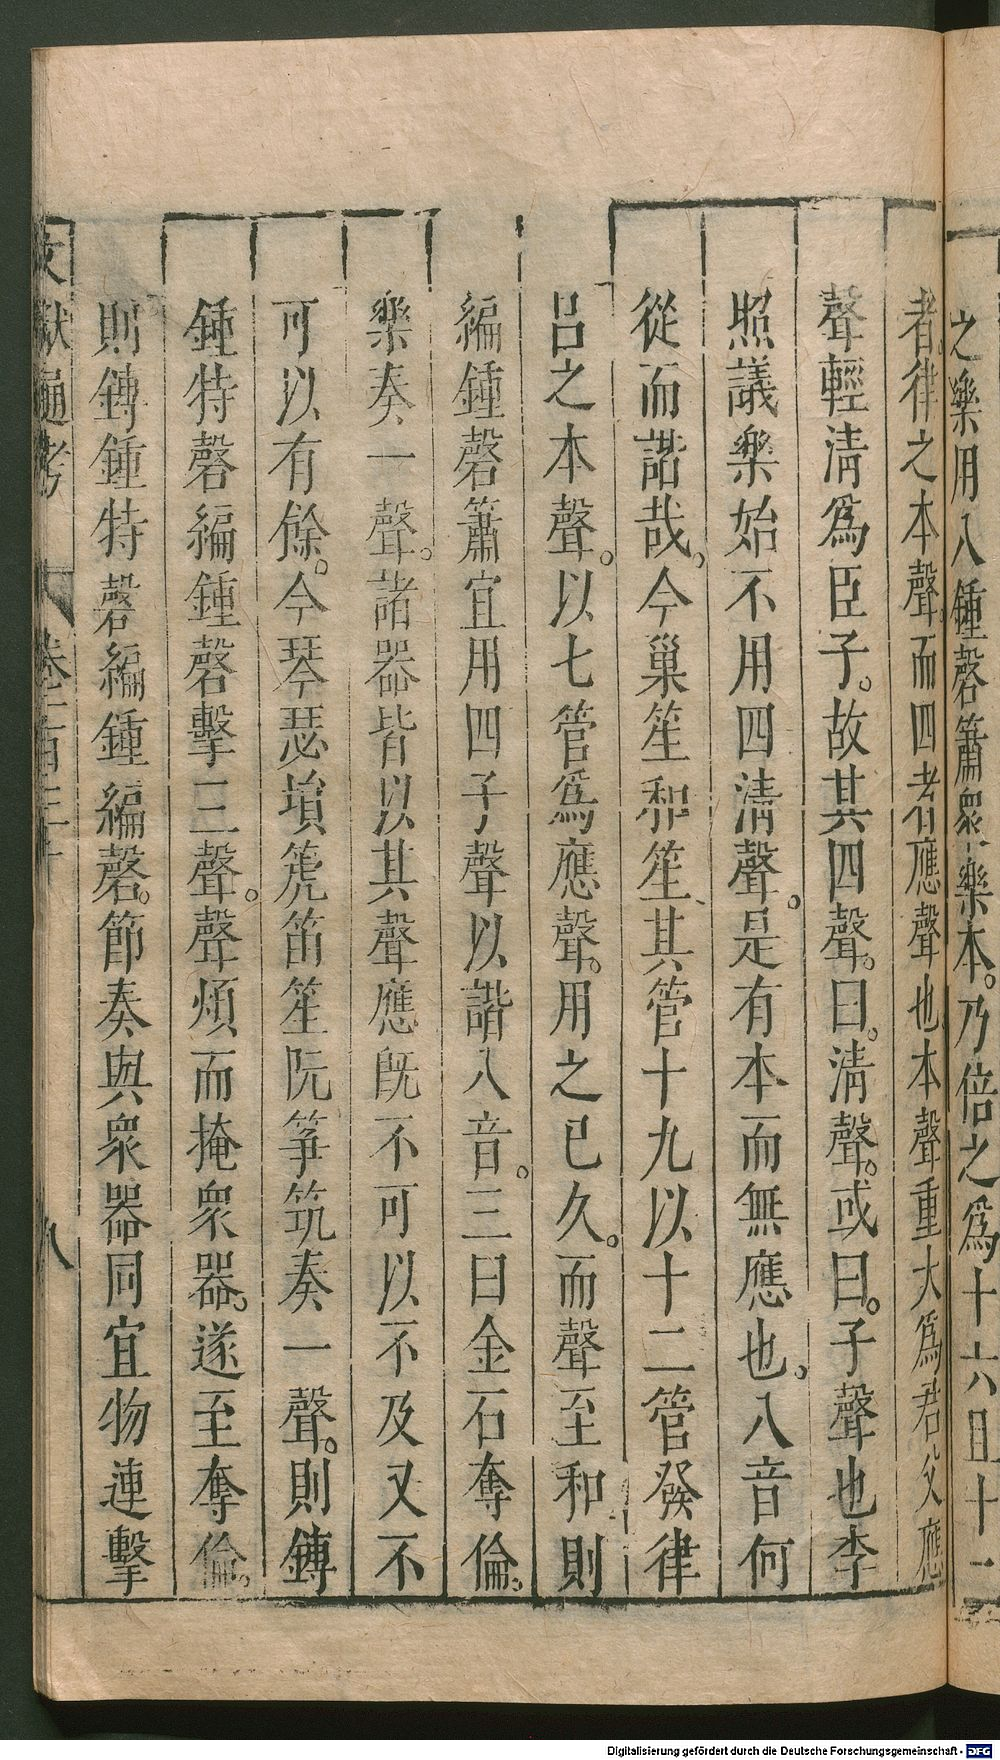 之樂用八鍾磬簫衆樂本。乃倍之爲十六且十二
者。律之本聲。而四者應聲也。本聲重大爲君父應
聲輕清爲臣子。故其四聲。曰。清聲。或曰。子聲也李
照議樂始不用四清聲。是有本而無應也。八音何
從而諧哉。今巢笙和笙其管十九以十二管發律
呂之本聲。以七管爲應聲。用之已久。而聲至和則
編鍾磬簫宜用四子聲以諧八音。三曰金石奪倫。
樂奏一聲。諸器皆以其聲應旣不可以不及又不
可以有餘。今琴瑟塤箎笛笙阮筝筑奏一聲。則鏄
鍾特磬編鍾磬擊三聲。聲煩而掩衆器。遂至奪倫。
則鏄鍾特磬編鍾編磬。節奏與衆器同宜物連擊
文獻通考 卷一百三十 八
Digitalisierung gefördert durch die Deutsche Forschungsgemeinschaft - DFG